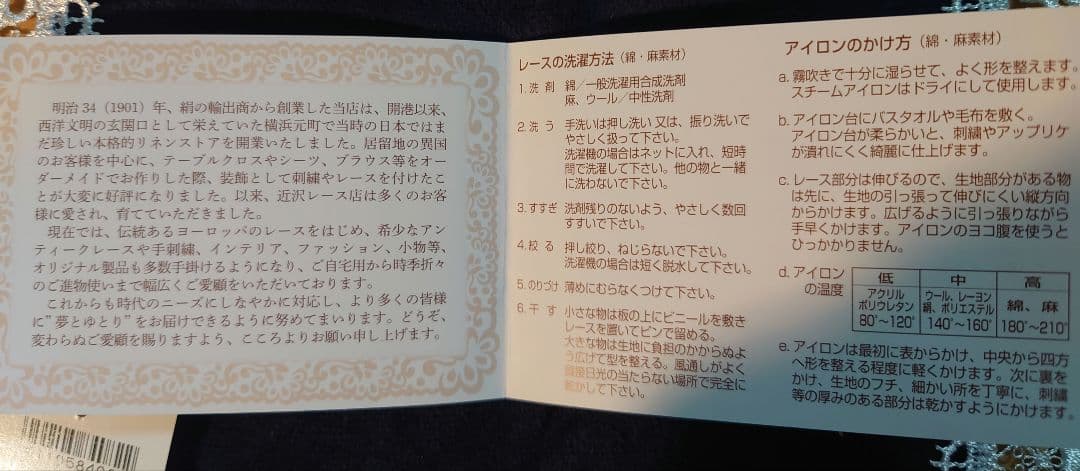 明治34（1901）年、絹の輸出商から創業した当店は、開港以来、
西洋文明の玄関口として栄えていた横浜元町で当時の日本ではま
だ珍しい本格的リネンストアを開業いたしました。居留地の異国
のお客様を中心に、テーブルクロスやシーツ、ブラウス等をオー
ダーメイドでお作りした際、装飾として刺繍やレースを付けたこ
とが大変に好評になりました。以来、近沢レース店は多くのお客
様に愛され、育てていただきました。
現在では、伝統あるヨーロッパのレースをはじめ、希少なアン
ティークレースや手刺繍、インテリア、ファッション、小物等、
オリジナル製品も多数手掛けるようになり、ご自宅用から時季折々
のご進物使いまで幅広くご愛顧をいただいております。
これからも時代のニーズにしなやかに対応し、より多くの皆様
に”夢とゆとり”をお届けできるように努めてまいります。どうぞ、
変わらぬご愛顧を賜りますよう、こころよりお願い申し上げます。
レースの洗濯方法（綿・麻素材）
1.洗 剤 綿／一般洗濯用合成洗剤
麻、ウール／中性洗剤
2.洗 う 手洗いは押し洗い又は、振り洗いで
やさしく扱って下さい。
洗濯機の場合はネットに入れ、短時
間で洗濯して下さい。他の物と一緒
に洗わないで下さい。
3.すすぎ 洗剤残りのないよう、やさしく数回
すすいで下さい。
4.絞 る 押し絞り、ねじらないで下さい。
洗濯機の場合は短く脱水して下さい。
5.のりづけ 薄めにむらなくつけて下さい。
6.干 す 小さな物は板の上にビニールを敷き
レースを置いてピンで留める。
大きな物は生地に負担のかからぬよ
う広げて型を整える。風通しがよく
直接日光の当たらない場所で完全に
乾かして下さい。
アイロンのかけ方（綿・麻素材）
a. 霧吹きで十分に湿らせて、よく形を整えます。
スチームアイロンはドライにして使用します。
b. アイロン台にバスタオルや毛布を敷く。
アイロン台が柔らかいと、刺繍やアップリケ
が潰れにくく綺麗に仕上げます。
c. レース部分は伸びるので、生地部分がある物
は先に、生地の引っ張って伸びにくい縦方向
からかけます。広げるように引っ張りながら
手早くかけます。アイロンのヨコ腹を使うと
ひっかかりません。
d. アイロン
の温度
低 中 高
アクリル
ポリウレタン
80°～120°
ウール、レーヨン
絹、ポリエステル
140°～160°
綿、麻
180°～210°
e. アイロンは最初に表からかけ、中央から四方
へ形を整える程度に軽くかけます。次に裏を
かけ、生地のフチ、細かい所を丁寧に、刺繍
等の厚みのある部分は乾かすようにかけます。